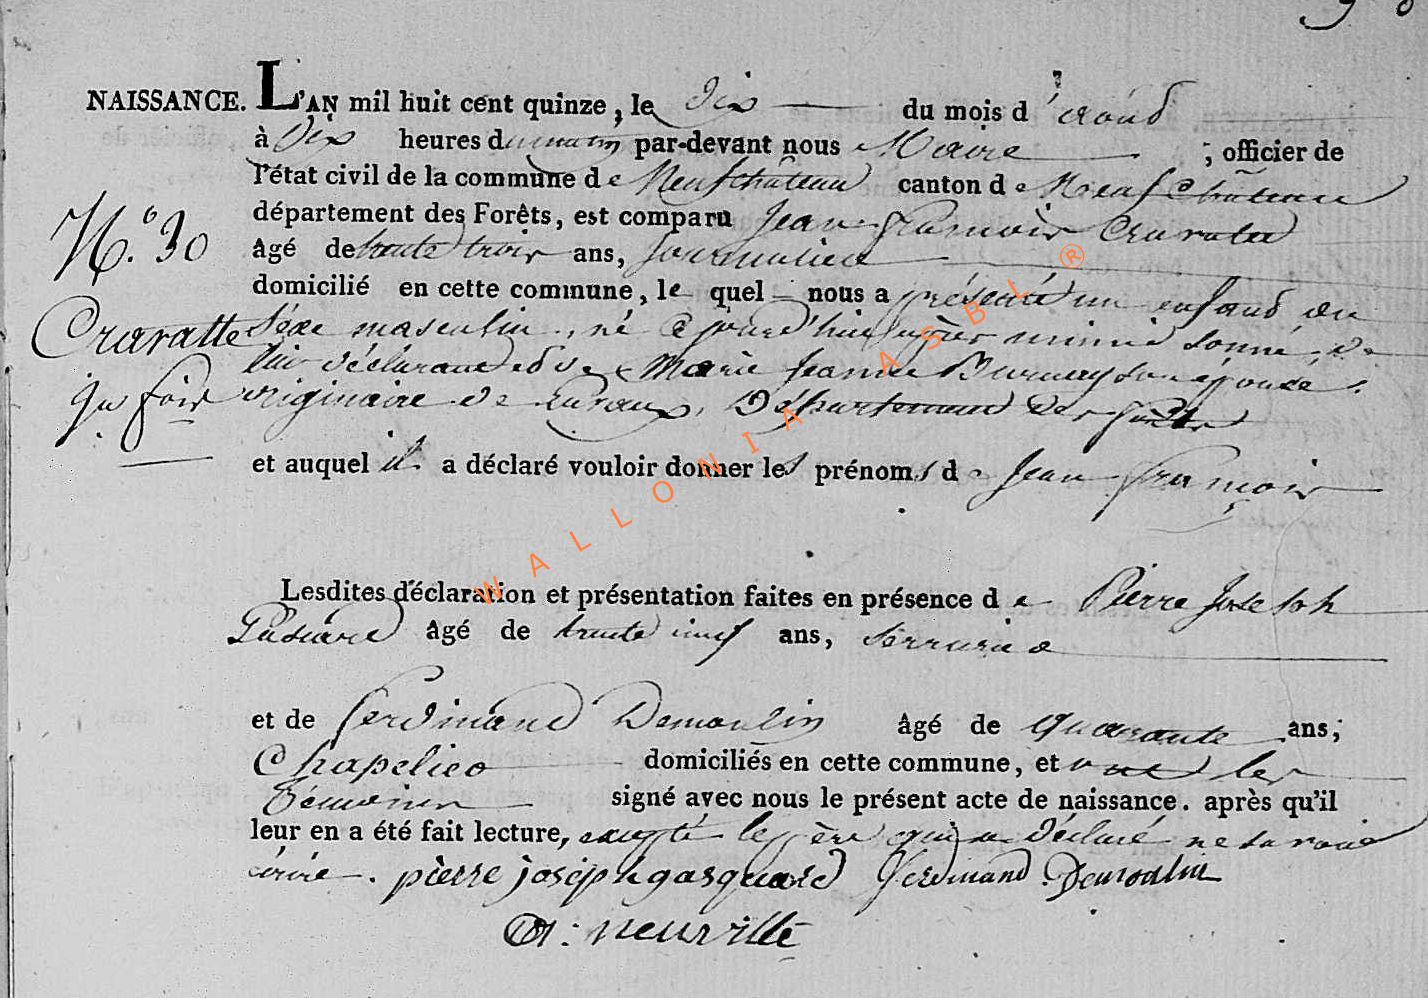 NAISSANCE. L'AN mil huit cent quinze, le dix du mois d'aoud
à dix heures du matin par-devant nous Maire ; officier de
l'état civil de la commune de Neufchâteau canton de Neufchâteau
département des Forêts, est comparu Jean françois Cravatte
N.° 30
âgé de trente trois ans, journalier
domicilié en cette commune, le quel nous a présenté un enfand du
Cravatte
Sexe masculin, né ce jourd'hui minuit sonné, de
lui déclarand et de Marie Jeanne son épouse,
jn fois
originaire de Département des forêts
et auquel il a déclaré vouloir donner les prénoms de Jean françois
Lesdites déclaration et présentation faites en présence de Pierre Joseph
âgé de trente neuf ans, Serrurier
et de ferdinand Demoulin âgé de quarante ans;
Chapelier domiciliés en cette commune, et ont les
témoins signé avec nous le présent acte de naissance. après qu'il
leur en a été fait lecture, excepté le père qui a déclaré ne savoir
écrire. pierre joseph gasquard ferdinand Demoulin
neuville
WALLONIA ASBL ®